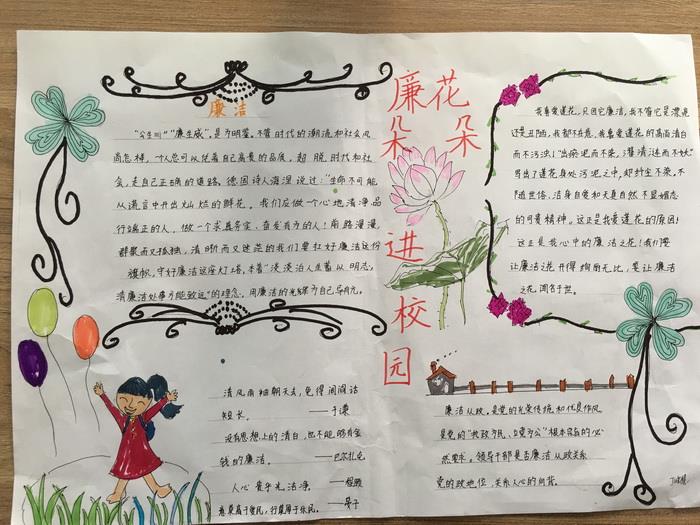 廉花朵朵进校园
廉洁
"公生明""廉生威",是为明鉴。不管时代的潮流和社会风
尚怎样,个人总可以凭着自己高贵的品质,超脱时代和社
会,走自己正确的道路。德国诗人海涅说过:"生命不可能
从谎言中开出灿烂的鲜花。我们应做一个心地清净品
行端正的人,做一个求真务实,奋发有为的人!前路漫漫
群聚而又孤独,清晰而又迷茫的我们要扛好廉洁这份
旗帜,守好廉洁这座灯塔,本着"淡泊人生蓄从明志,
清廉处事方能致远"的理念,用廉洁的光辉为自己导航。
清风两袖朝天去,免得闾阎话
短长。——于谦
没有思想上的清白,也不能够有金
钱的廉洁。——巴尔扎克
人心贵乎光洁净。——程颢
意莫高于爱民,行莫厚于乐民。——晏子
我喜爱莲花,只因它廉洁,我不管它是漂亮
还是丑陋,我都不在意,我喜爱莲花的高尚清白
而不污浊!"出淤泥而不染,濯清涟而不妖"
写出了莲花身处污泥之中,却纤尘不染,不
随世俗、洁身自爱和天真自然不显媚态
的可贵精神。这正是我爱莲花的原因!
这正是我心中的廉洁之花!我们要
让廉洁之花开得绚丽无比,要让廉洁
之花闻名于世。
廉洁从政,是党的光荣传统和优良作风
是党的"执政为民、立党为公"根本宗旨的必
然要求。领导干部是否廉洁从政关系
党的政地位,关系人心的向背。